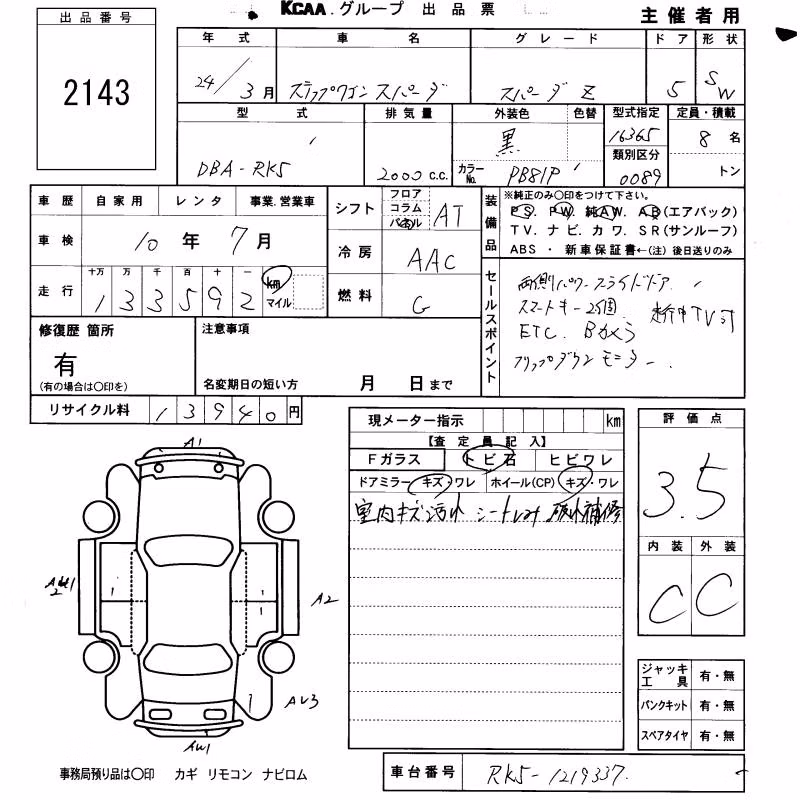 KCAA.グループ 出品票
主催者用
出品番号
2143
年式 車名 グレード ドア 形状
24/3月 ステップワゴン スパーダ スパーダ Z 5 SW
型式 排気量 外装色 色替 型式指定 定員・積載
DBA-RK5 2000 c.c. 黒 16365 8名
カラーNo. PB81P 類別区分 0089 トン
車歴 自家用 レンタ 事業.営業車
車検 10年7月
走行 十万 万 千 百 十 一
133592 km マイル
シフト フロア コラム パネル AT
冷房 AAC
燃料 G
装備品
※純正のみ〇印をつけて下さい。
PS. PW. 純AW. AB(エアバック)
TV. ナビ. カワ. SR(サンルーフ)
ABS ・ 新車保証書←(注) 後日送りのみ
セールスポイント
両側パワースライドドア
スマートキー2個 走行中TV可
ETC. Bカメラ
フリップダウンモニター
修復歴 箇所
有
(有の場合は〇印を)
注意事項
名変期日の短い方 月 日まで
リサイクル料 13940円
現メーター指示 km
【査定員記入】
Fガラス トビ石 ヒビワレ
ドアミラー キズ・ワレ ホイール(CP) キズ・ワレ
室内キズ汚れ シート
補修
評価点
3.5
内装 外装
C C
A1
2
1
1
1
A2
1
AU3
AW1
ジャッキ工具 有・無
パンクキット 有・無
スペアタイヤ 有・無
事務局預り品は〇印 カギ リモコン ナビロム
車台番号 RK5-1219337